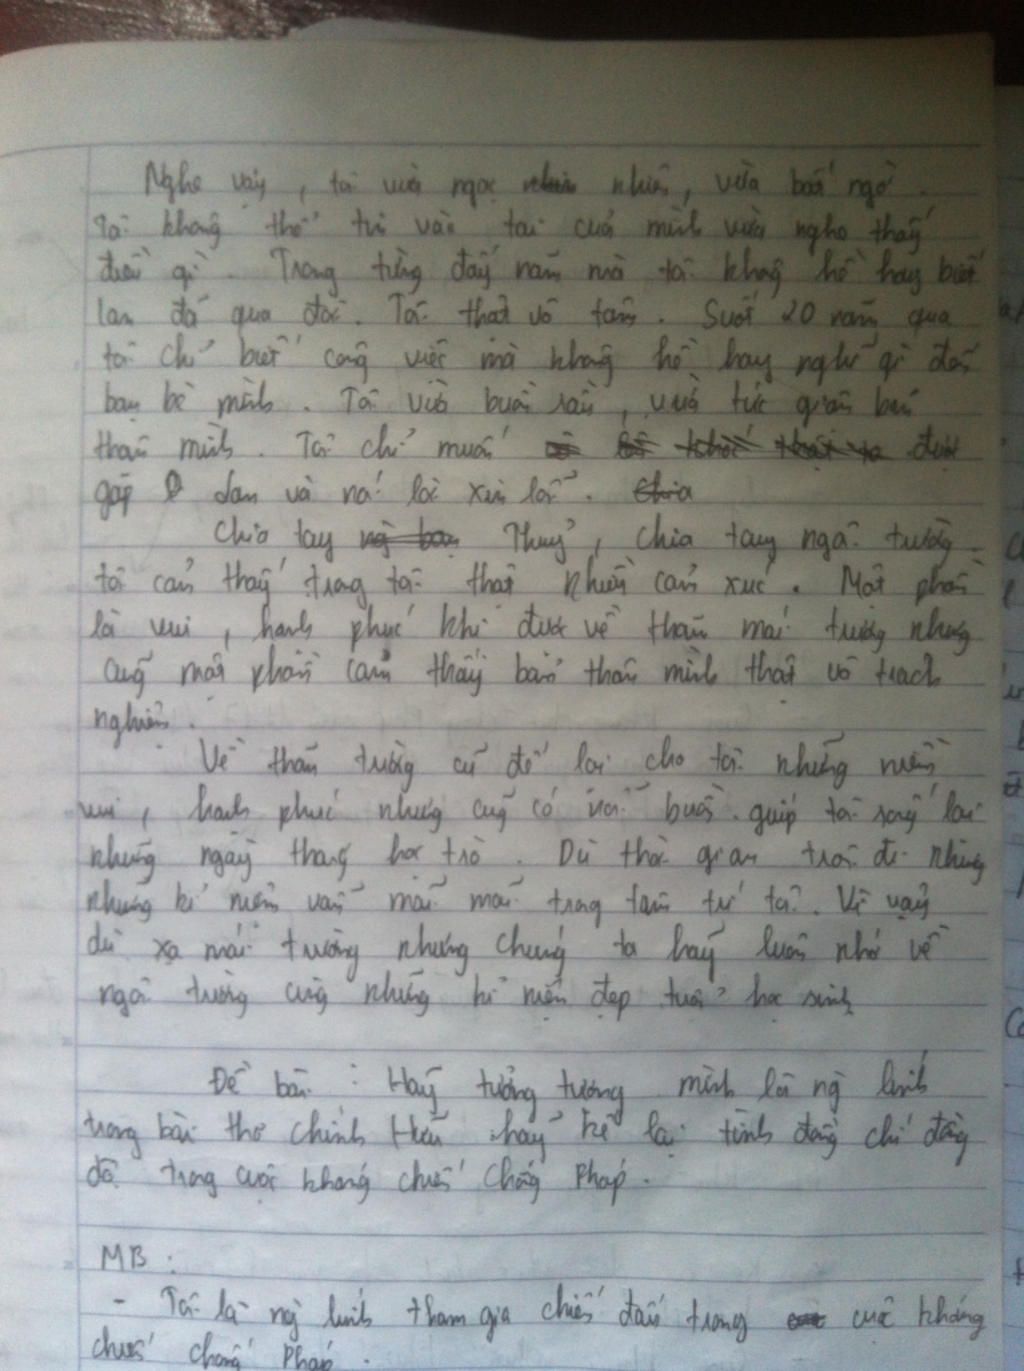 Nghe vậy, tôi vừa ngạc nhiên, vừa bất ngờ.
Tôi không thể tin vào tai của mình vừa nghe thấy
điều gì. Trong từng đấy năm mà tôi không hề hay biết
lan đã qua đời. Tôi thật vô tâm. Suốt 20 năm qua
tôi chỉ biết công việc mà không hề hay nghĩ gì đến
bạn bè mình. Tôi vừa buồn rầu, vừa tức giận bản
thân mình. Tôi chỉ muốn được
gặp lan và nói lời xin lỗi.
Chia tay Thuỷ, chia tay ngôi trường
tôi cảm thấy trong tôi thật nhiều cảm xúc. Một phần
là vui, hạnh phúc khi được về thăm mái trường nhưng
cũng một phần cảm thấy bản thân mình thật vô trách
nghiệm.
Về thăm trường cũ để lại cho tôi những niềm
vui, hạnh phúc nhưng cũng có nỗi buồn. giúp tôi sống lại
những ngày tháng học trò. Dù thời gian trôi đi nhưng
những kỉ niệm vẫn mãi mãi trong tâm trí tôi. Vì vậy
dù xa mái trường nhưng chúng ta hãy luôn nhớ về
ngôi trường cùng những kỉ niệm đẹp tuổi học sinh
Đề bài: Hãy tưởng tượng mình là ng lính
trong bài thơ chính Hữu hãy kể lại tình đồng chí đồng
đội trong cuộc kháng chiến chống Pháp.
MB:
- Tôi là ng lính tham gia chiến đấu trong cuộc kháng
chiến chống Pháp.